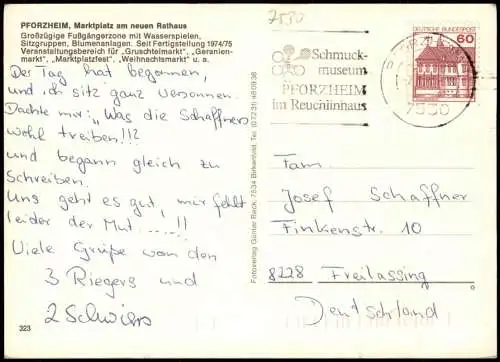 PFORZHEIM, Marktplatz am neuen Rathaus
Großzügige Fußgängerzone mit Wasserspielen,
Sitzgruppen, Blumenanlagen. Seit Fertigstellung 1974/75
Veranstaltungsbereich für "Gruschtelmarkt", "Geranien-
markt", "Marktplatzfest", "Weihnachtsmarkt" u. a.
Der Tag hat begonnen,
und ich sitz ganz versonnen.
Dachte mir: "Was die Schaffners
wohl treiben!!!
und begann gleich zu
Schreiben.
Uns geht es gut, mir fehlt
leider der Mut, .....!!
Viele Grüße von den
3 Riegers und
2 Schwiers
323
Fotoverlag Günter Beck, 7534 Birkenfeld, Tel. (07231)
7530
Schmuck-
museum
PFORZHEIM
im Reuchlinhaus
7530
60
DEUTSCHE BUNDESPOST
Fam.
Josef Schaffner
Finkenstr. 10
8228 Freilassing
Deutschland